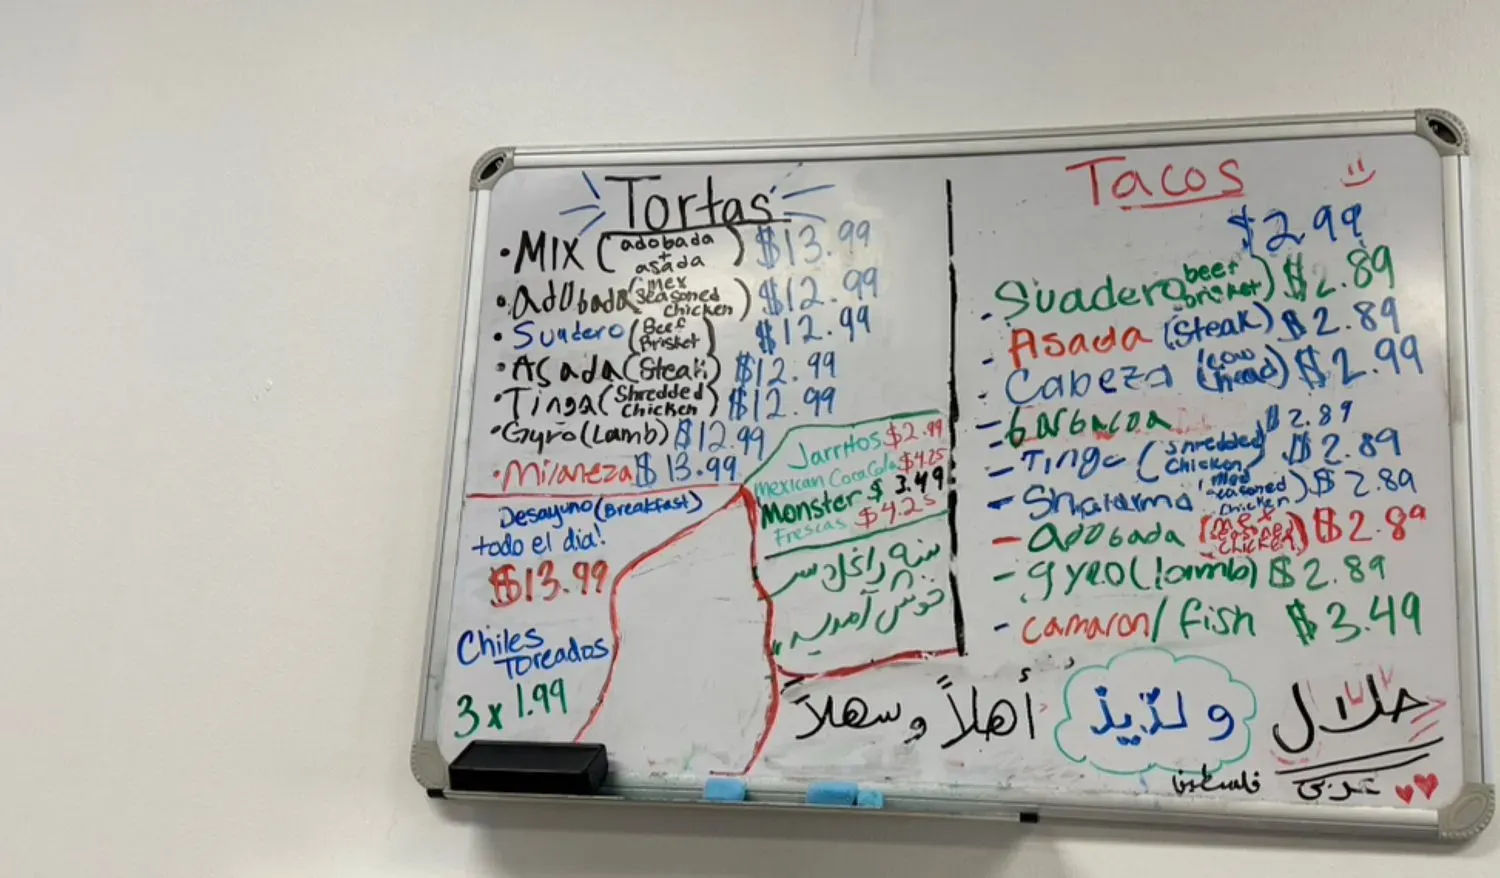 Tortas
• MIX (adobada + asada) $13.99
• Adobada (mex seasoned chicken) $12.99
• Suadero (Beef Brisket) $12.99
• Asada (Steak) $12.99
• Tinga (Shredded Chicken) $12.99
• Gyro (Lamb) $12.99
• Milaneza $13.99
Desayuno (Breakfast)
todo el dia!
$13.99
Chiles
Toreados
3 x 1.99
Jarritos $2.99
Mexican CocaCola $4.25
Monster $3.49
Frescas $4.25
خوش آمدید
Tacos
$2.99
- Suadero (beef brisket) $2.89
- Asada (Steak) $2.89
- Cabeza (cow head) $2.99
- barbacoa $2.89
- Tinga (Shredded Chicken) $2.89
- (med seasoned chicken) $2.89
- Adobada (mex seasoned chicken) $2.89
- gyro (lamb) $2.89
- camaron/fish $3.49
حلال ولذيذ أهلاً وسهلاً
عربي